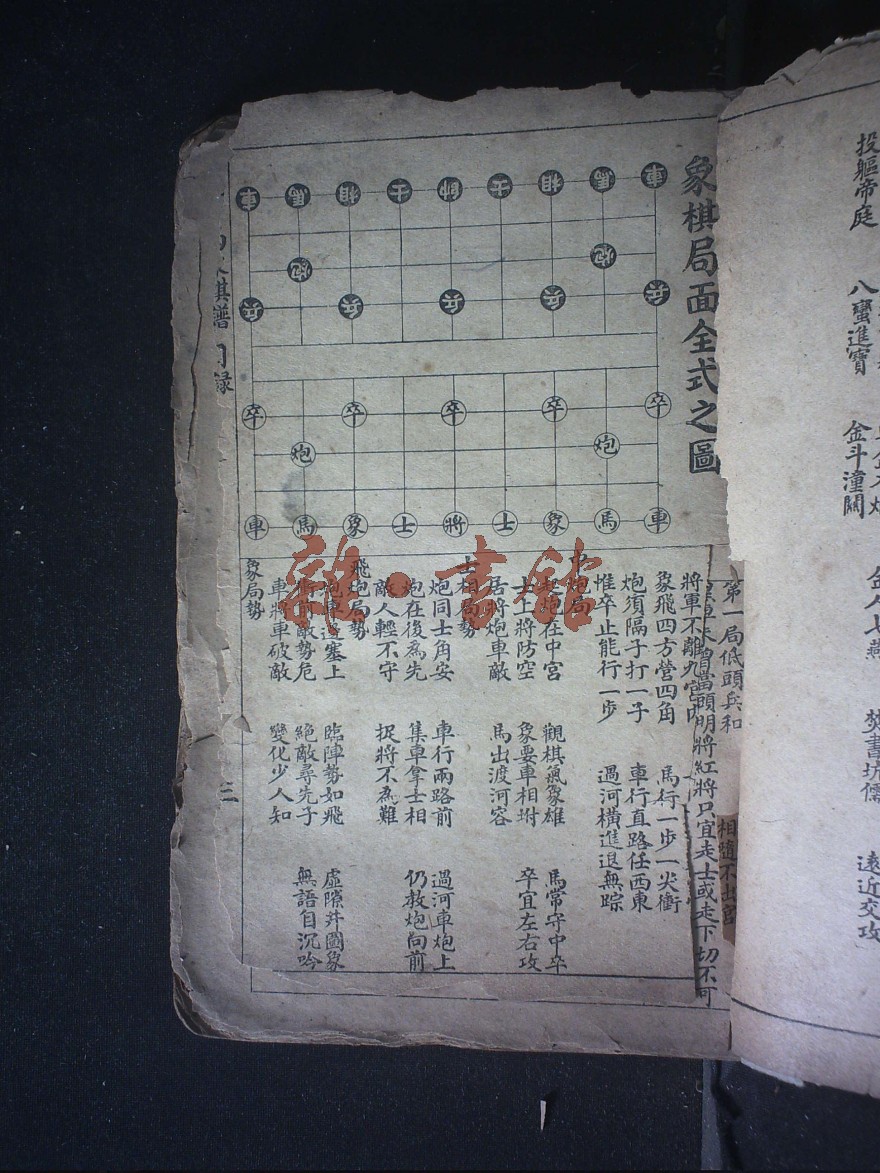 投軀帝庭
八蠻進寶
金斗潼關
焚書坑儒
遠近交攻
象棋局面全式之圖
車 馬 相 士 帥 士 相 馬 車
炮 炮
兵 兵 兵 兵 兵
卒 卒 卒 卒 卒
炮 炮
車 馬 象 士 將 士 象 馬 車
第一局低頭兵和
相隨不出宮
當頭明將紅將只宜走士或走下切不可
將軍不離九宮內
象飛四方營四角 馬行一步一尖衝
炮須隔子打一子 車行直路任西東
惟卒止能行一步 過河橫進退無踪
中炮局
起炮在中宮 觀棋氣象雄 馬常守中卒
士上將防空 象要車相垪 卒宜左右攻
居將炮車敵 馬出渡河容
士相局勢
炮同士角安 車行兩路前 過河車炮上
炮在後為先 集車拿士相 仍教炮向前
敵人輕不守 捉將不為難
飛炮局勢
炮車邊塞上 臨陣勢如飛 虛隙井圖象
衝前敵勢危 絕敵尋先子 無語自沉吟
車將車破敵 變化少人知
象局勢
棋譜 目錄
三
雜·書館